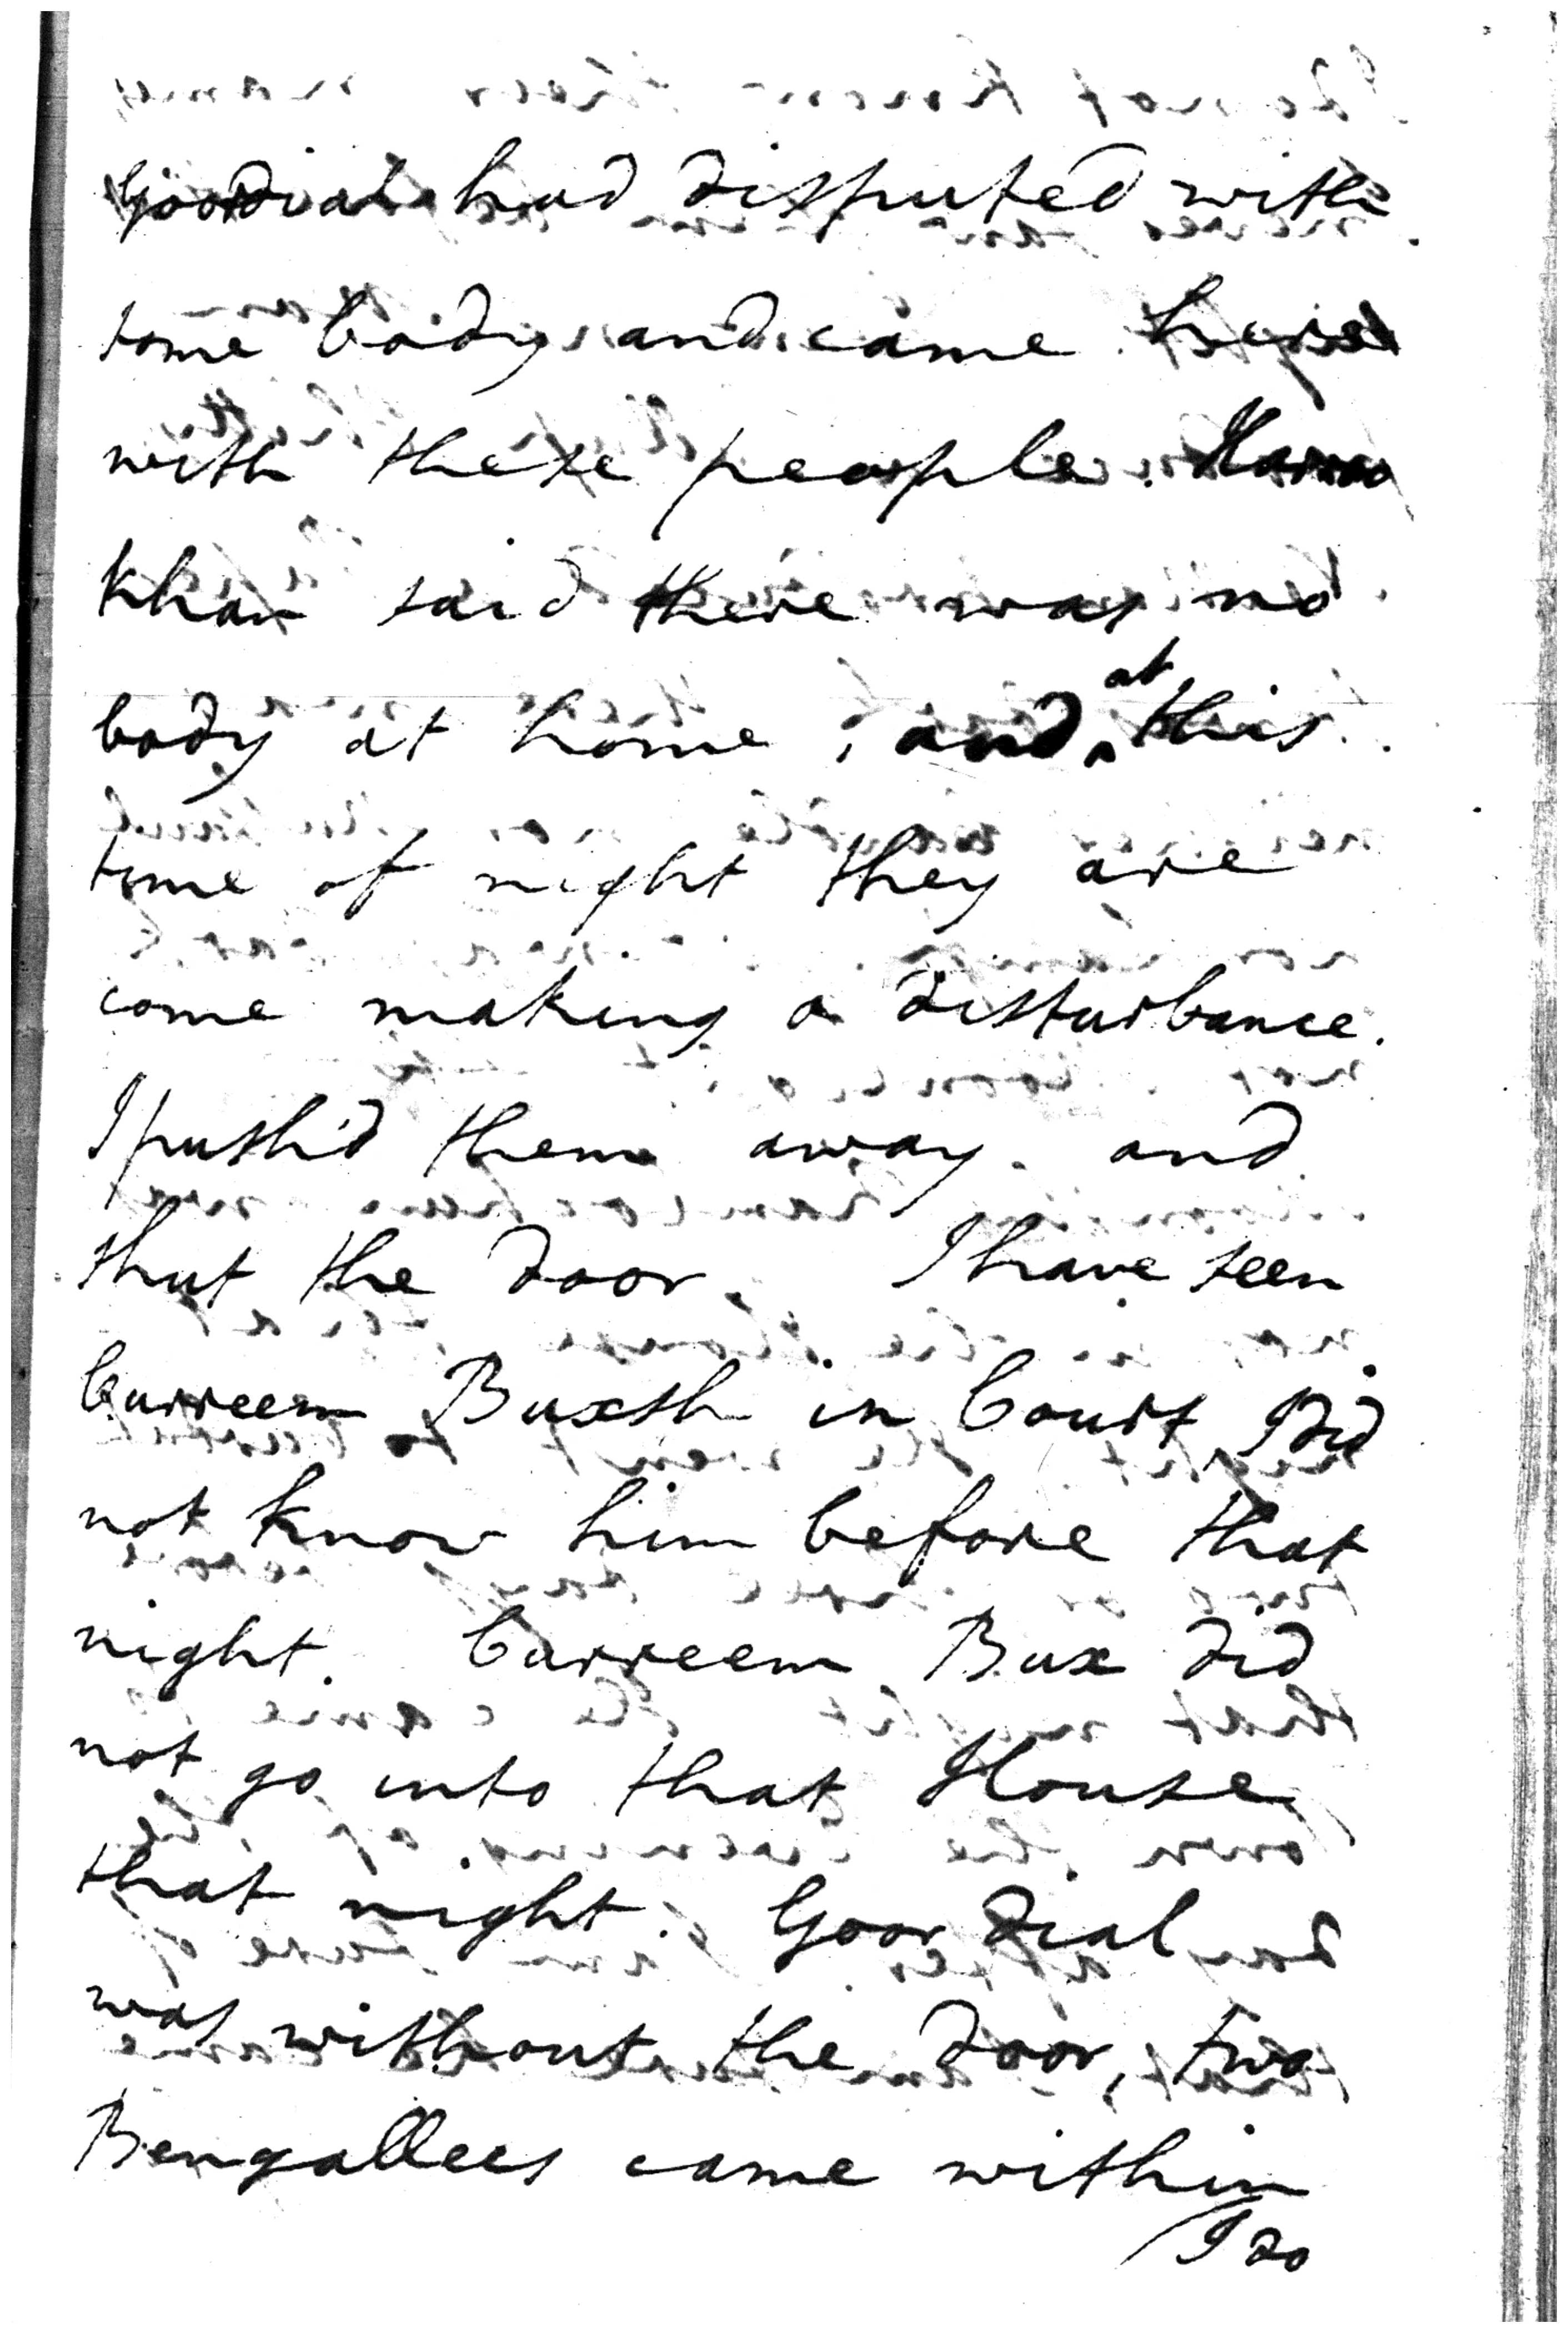 Goordial had disputed with
some body and came here
with these people.
Khan said there was no
body at home, and at this
time of night they are
come making a disturbance.
I push'd them away and
shut the door. I have seen
Curreem Buxsh in Court I did
not know him before that
night. Curreem Bux did
not go into that House
that night. Goor dial
was without the door, two
Bengallees came within
I do